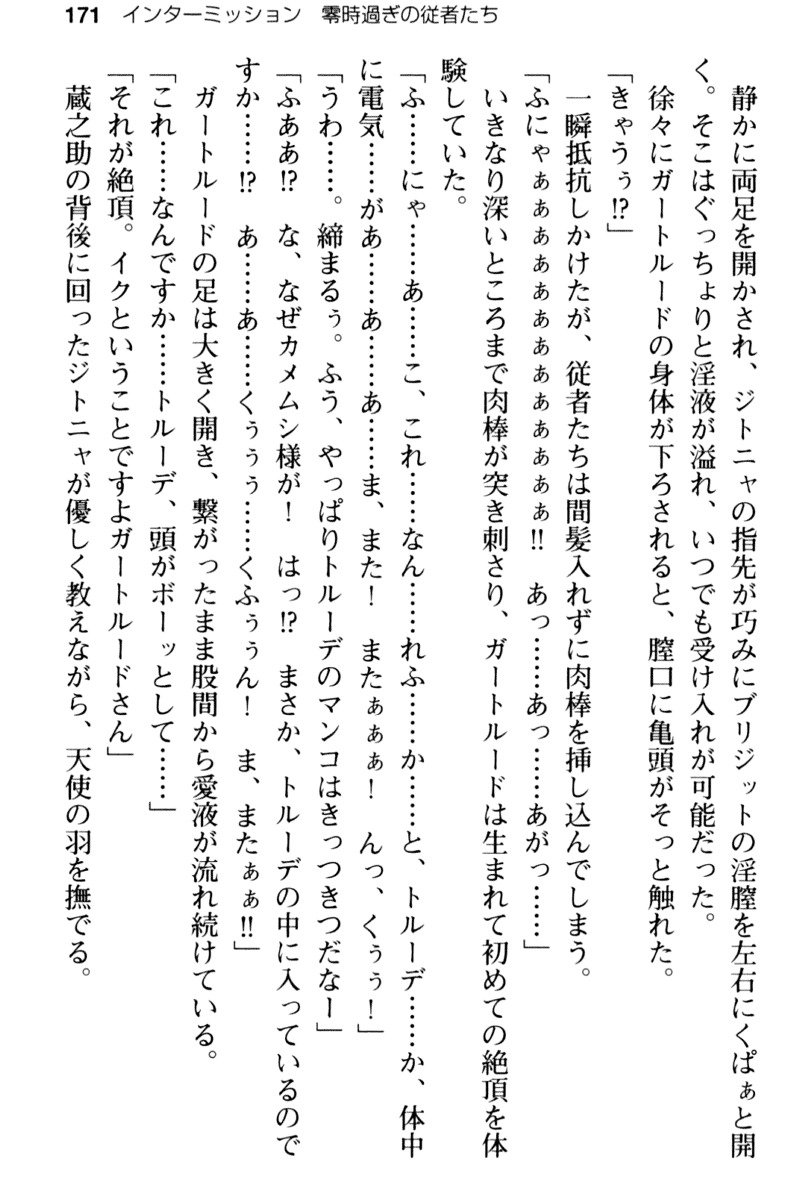 171 インターミッション　零時過ぎの従者たち
　静かに両足を開かされ、ジトニャの指先が巧みにブリジットの淫膣を左右にくぱぁと開
く。そこはぐっちょりと淫液が溢れ、いつでも受け入れが可能だった。
　徐々にガートルードの身体が下ろされると、膣口に亀頭がそっと触れた。
「きゃうぅ!?」
　一瞬抵抗しかけたが、従者たちは間髪入れずに肉棒を挿し込んでしまう。
「ふにゃぁぁぁぁぁぁぁぁぁぁぁぁぁ!!　あっ……あっ……あがっ……」
　いきなり深いところまで肉棒が突き刺さり、ガートルードは生まれて初めての絶頂を体
験していた。
「ふ……にゃ……あ……こ、これ……なん……れふ……か……と、トルーデ……か、体中
に電気……があ……あ……あ……ま、また！　またぁぁぁ！　んっ、くぅぅ！」
「うわ……。締まるぅ。ふう、やっぱりトルーデのマンコはきっつきつだなー」
「ふああ!?　な、なぜカメムシ様が！　はっ!?　まさか、トルーデの中に入っているので
すか……!?　あ……あ……くぅぅぅ……くふぅぅん！　ま、またぁぁ!!」
　ガートルードの足は大きく開き、繋がったまま股間から愛液が流れ続けている。
「これ……なんですか……トルーデ、頭がボーッとして……」
「それが絶頂。イクということですよガートルードさん」
　蔵之助の背後に回ったジトニャが優しく教えながら、天使の羽を撫でる。